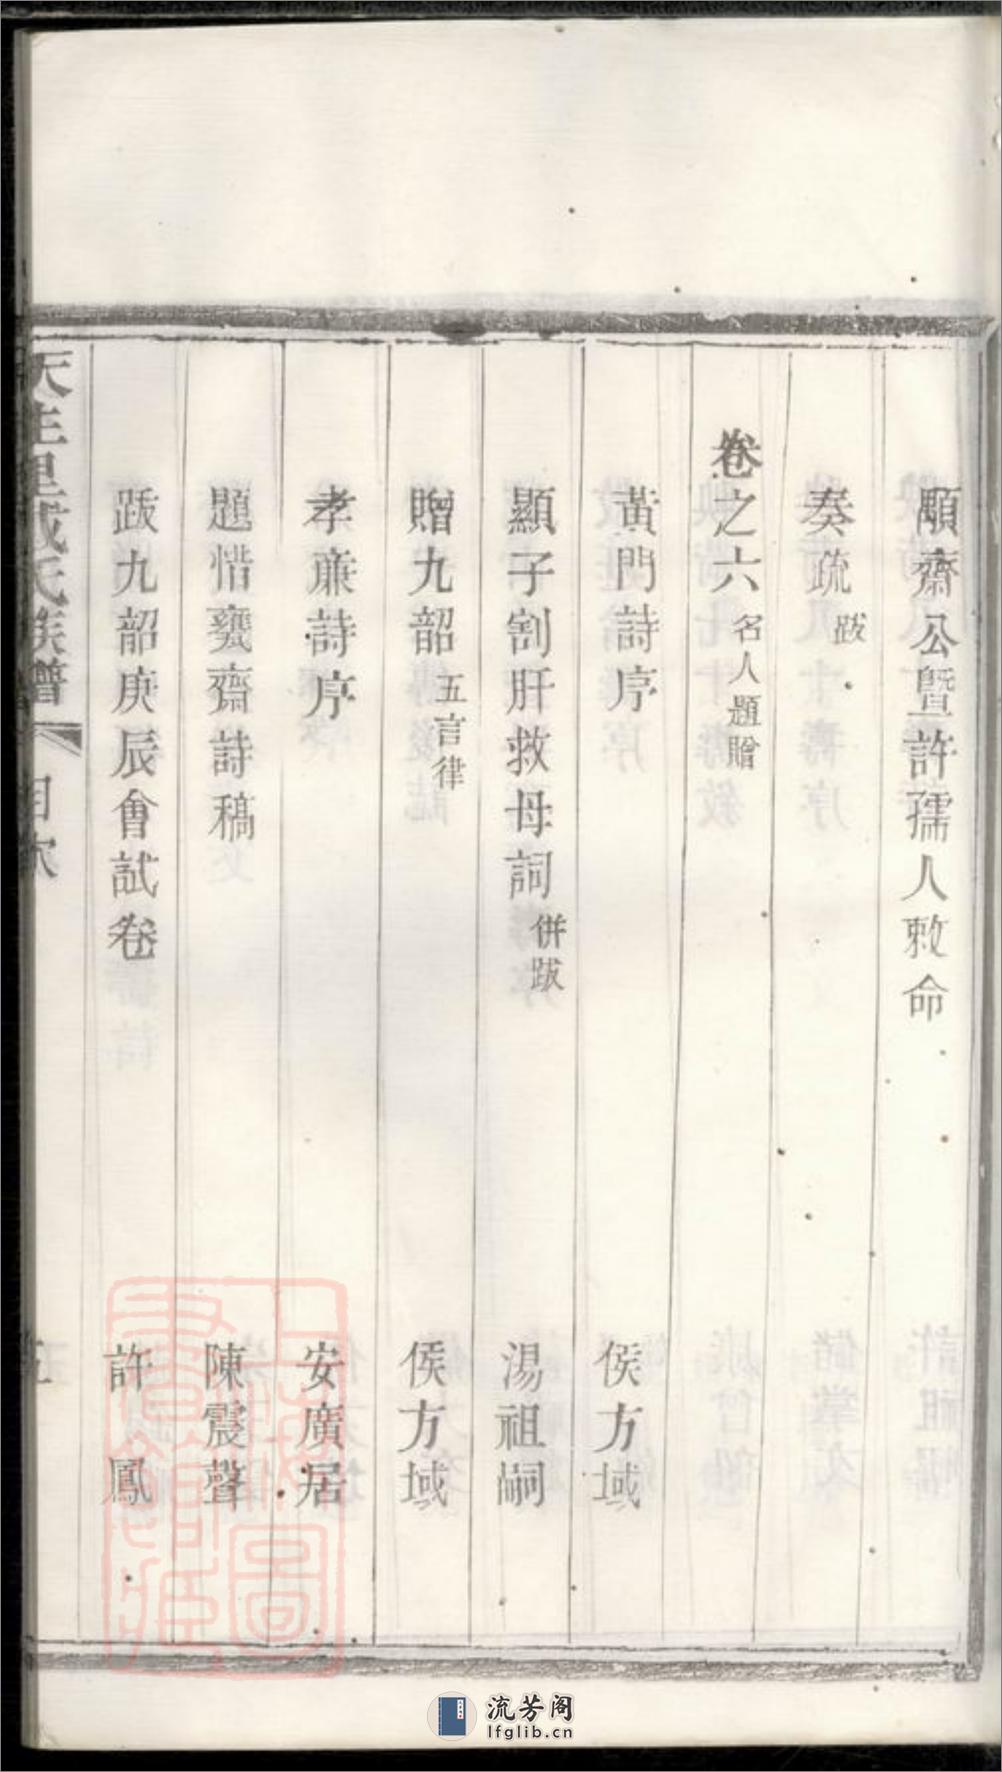 顒齋公暨許孺人敕命
奏疏 跋
卷之六 名人題贈
黃門詩序 侯方域
顯子割肝救母詞 併跋 湯祖嗣
贈九韶 五言律 侯方域
孝廉詩序 安廣居
題惜甕齋詩稿 陳震聲
跋九韶庚辰會試卷 許鳳
氏族譜 目次 五
上海圖書館藏
流芳阁
lfglib.cn